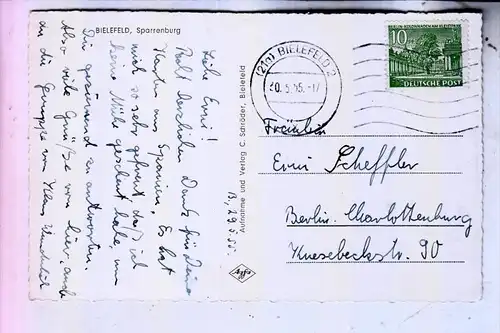 BIELEFELD, Sparrenburg
B. 29.5.55.
Liebe Erni!
Recht herzlichen Dank für Deine
Karte aus Spanien. Es hat
mich so sehr gefreut, daß ich
keine Mühe gescheut habe, um
Dir geziemend zu antworten.
Also viele Grüße von hier, auch
an die Gruppe von Klaus
Aufnahme und Verlag C. Schröder, Bielefeld
Agfa
(21a) BIELEFELD 2
30.5.55.-17
10
DEUTSCHE POST
Fräulein
Erni Scheffler
Berlin-Charlottenburg
Knesebeckstr. 90